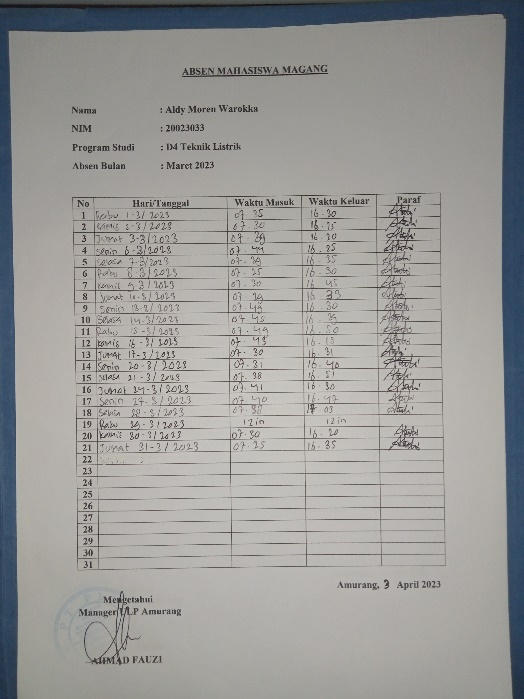 ABSEN MAHASISWA MAGANG
Nama : Aldy Moren Warokka
NIM : 20023033
Program Studi : D4 Teknik Listrik
Absen Bulan : Maret 2023
No Hari/Tanggal Waktu Masuk Waktu Keluar Paraf
1 Rabu 1-3/2023 07.35 16.30
2 Kamis 2-3/2023 07.30 16.25
3 Jumat 3-3/2023 07.39 16.20
4 Senin 6-3/2023 07.44 16.25
5 Selasa 7-3/2023 07.39 16.35
6 Rabu 8-3/2023 07.25 16.30
7 Kamis 9-3/2023 07.30 16.45
8 Jumat 10-3/2023 07.29 16.33
9 Senin 13-3/2023 07.45 16.30
10 Selasa 14-3/2023 07.45 16.35
11 Rabu 15-3/2023 07.49 16.50
12 Kamis 16-3/2023 07.43 16.15
13 Jumat 17-3/2023 07.30 16.31
14 Senin 20-3/2023 07.31 16.40
15 Selasa 21-3/2023 07.38 16.51
16 Jumat 24-3/2023 07.41 16.30
17 Senin 27-3/2023 07.40 16.47
18 Selasa 28-3/2023 07.38 17.03
19 Rabu 29-3/2023 izin izin
20 Kamis 30-3/2023 07.30 16.20
21 Jumat 31-3/2023 07.25 16.35
22
23
24
25
26
27
28
29
30
31
Amurang, 3 April 2023
Mengetahui
Manager ULP Amurang
AHMAD FAUZI